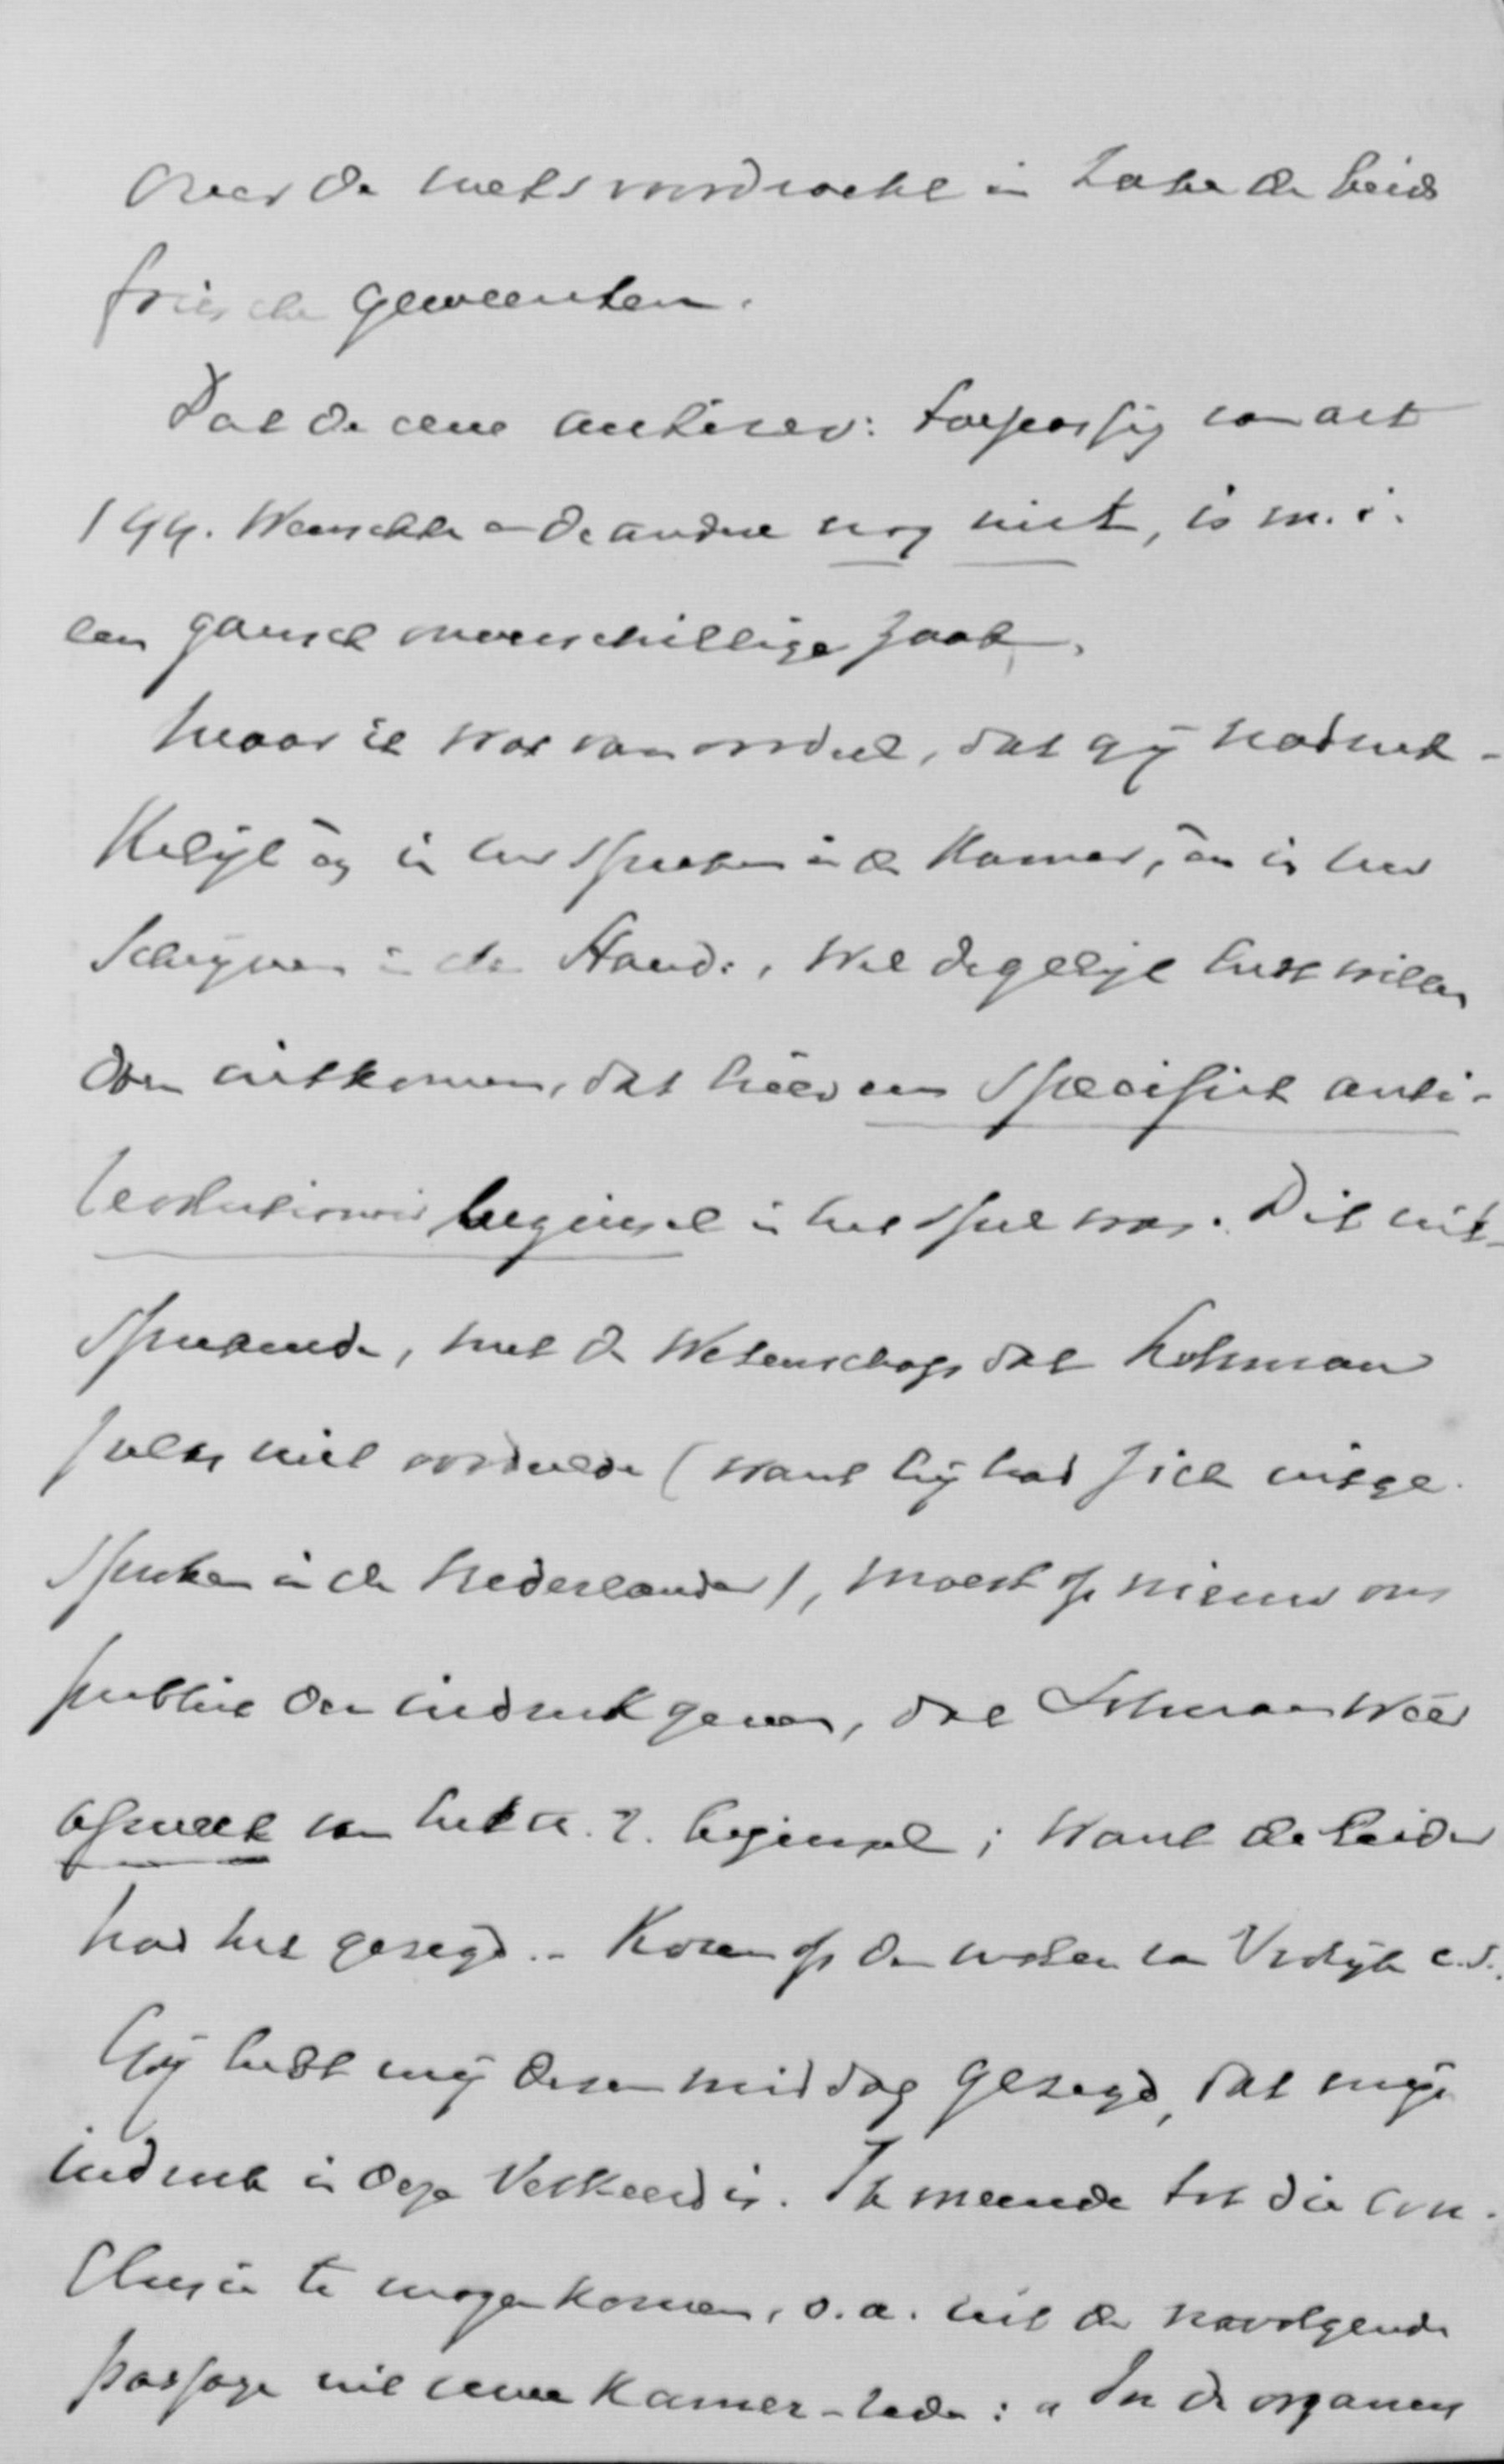 over de wetsvoordracht in zake de beide
friesche gemeenten.
Dat de eene antirev: toepassig van art
144. Wenschte en de andere nog niet, is m.i.
een gansch onverschillige zaak.
Maar ik was van oordeel, dat gij nadruk-
kelijk én in het spreken in de Kamer, én in het
schrijven in de Stand:, wel degelijk hebt willen
doen uitkomen, dat hier een specifiek anti-
revolutionair beginsel in het spel was. Dit uit-
sprekende, met de wetenschap dat Lohman
zulks niet oordeelde (want hij had zich uitge-
sproken in de Nederlander), moest op nieuw ons
publiek den indruk geven, dat Lohman wéér
afweek van het a.r. beginsel; want de leider
had het gezegd.- Koren op den molen van Vrolijk c.s.
Gij hebt mij dezen middag gezegd, dat mijn
indruk in deze verkeerd is. Ik meende tot die con-
clusie te mogen komen, o.a. uit de navolgende
passage uit uwe Kamer-rede: "In de organen